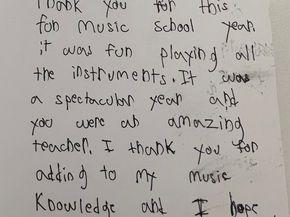 Thank you for this
fon Music school year.
it was fun playing all
the instruments. It was
a spectacular year and
you were an amazing
teacher. I thank you for
adding to my music
Knowledge and I hope